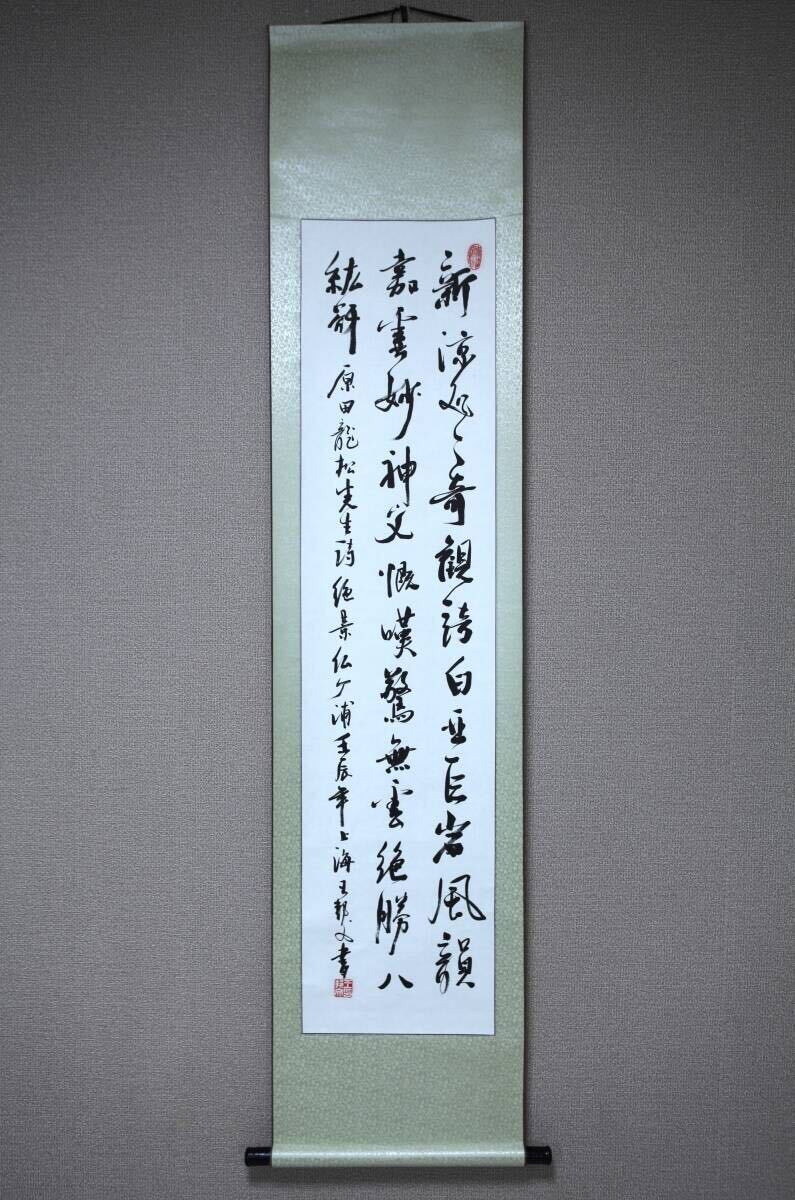 新涼処々奇観誇白亜巨岩風韻
嘉霊妙神慨嘆驚無雲絶勝八
紘冴 原田龍松先生詩絶景仏ケ浦壬辰年上海王邦文書